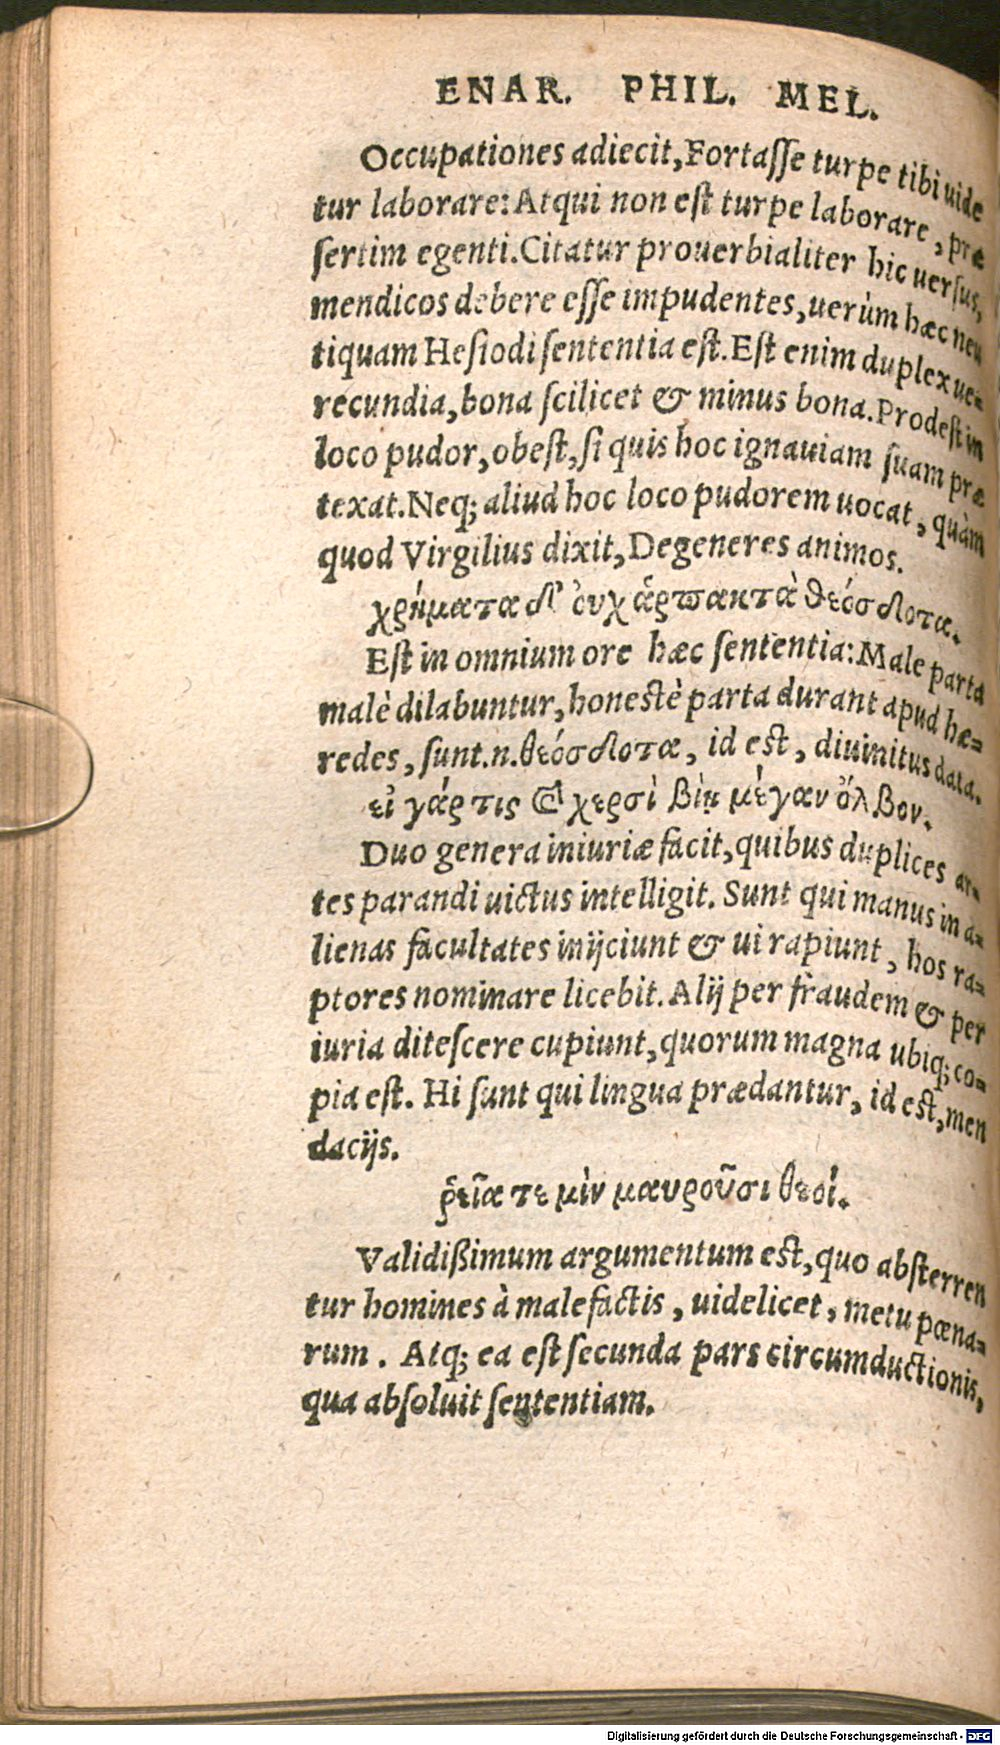 ENAR. PHIL. MEL.
Occupationes adiecit, Fortasse turpe tibi uide
tur laborare: Atqui non est turpe laborare, præ
sertim egenti. Citatur prouerbialiter hic uersus,
mendicos debere esse impudentes, uerùm hæc neu
tiquam Hesiodi sententia est. Est enim duplex ue-
recundia, bona scilicet & minus bona. Prodest in
loco pudor, obest, si quis hoc ignauiam suam præ
texat. Neq; aliud hoc loco pudorem uocat, quàm
quod Virgilius dixit, Degeneres animos.
χρήματα δ' ὀυχ ἁρπακτὰ θεόσδοτα.
Est in omnium ore hæc sententia: Male parta
malè dilabuntur, honestè parta durant apud hæ-
redes, sunt.n. θεόσδοτα, id est, diuinitus data.
εἰ γάρ τις ϗ χερσὶ βίῃ μέγαν ὄλβον.
Duo genera iniuriæ facit, quibus duplices ar-
tes parandi uictus intelligit. Sunt qui manus in a-
lienas facultates inijciunt & ui rapiunt, hos ra-
ptores nominare licebit. Alij per fraudem & per
iuria ditescere cupiunt, quorum magna ubiq; co-
pia est. Hi sunt qui lingua prædantur, id est, men
dacijs.
ῥεῖα τε μὶν μαυροῦσι θεοί.
Validißimum argumentum est, quo absterren
tur homines à malefactis, uidelicet, metu pœna-
rum. Atq; ea est secunda pars circumductionis,
qua absoluit sententiam.
Digitalisierung gefördert durch die Deutsche Forschungsgemeinschaft - DFG